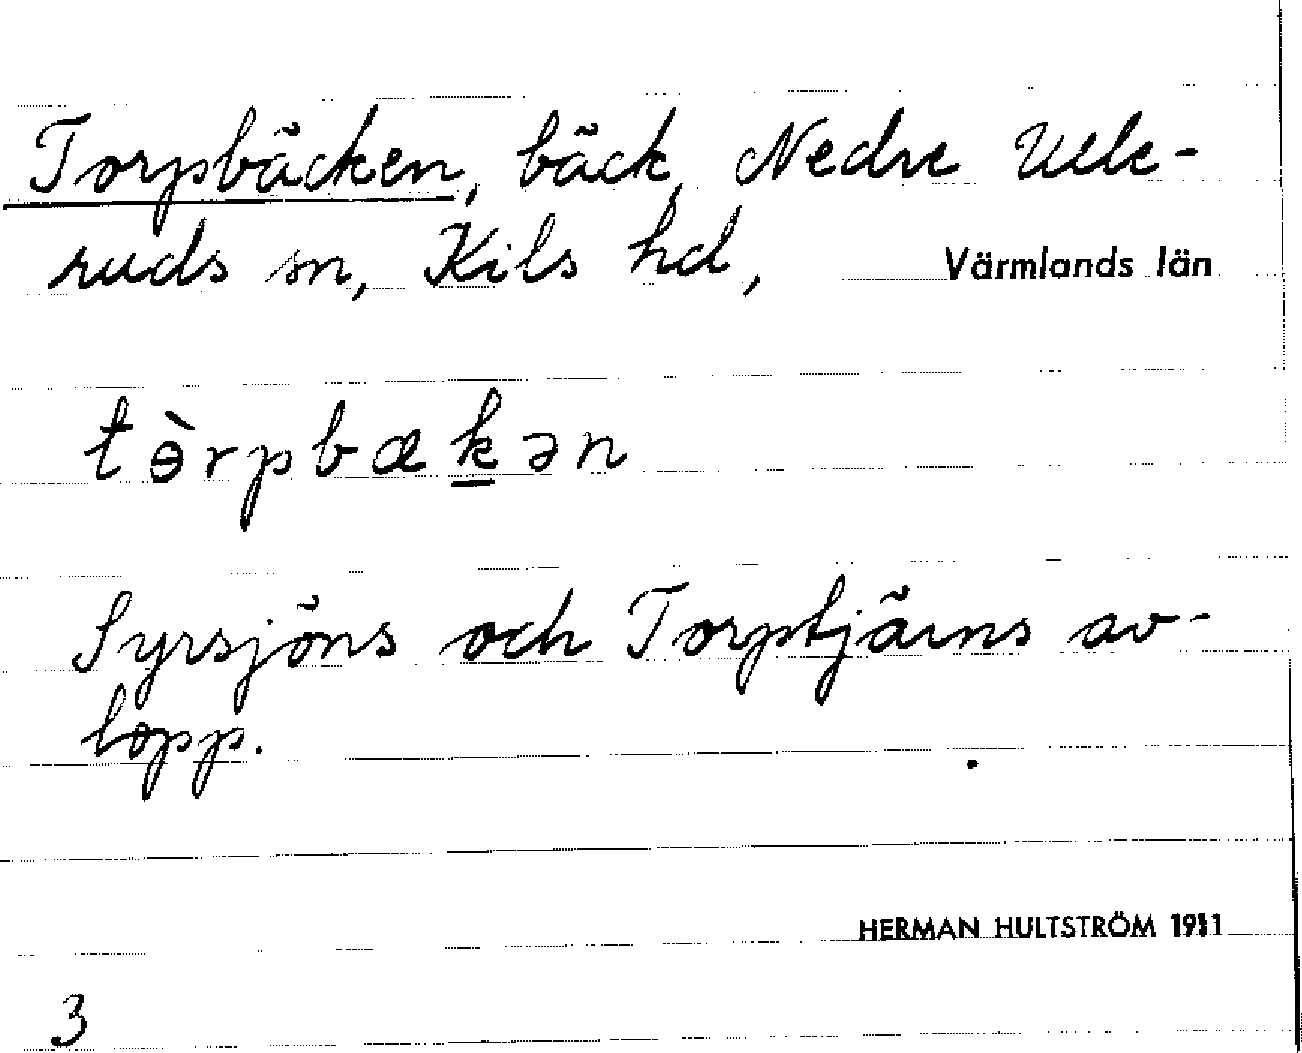 Torpbäcken, bäck, Nedre Ulle-
ruds sn, Kils hd, Värmlands län
tɵ̀rpbæk̲ən
Syrsjöns och Torptjärns av-
lopp.
HERMAN HULTSTRÖM 1911
3